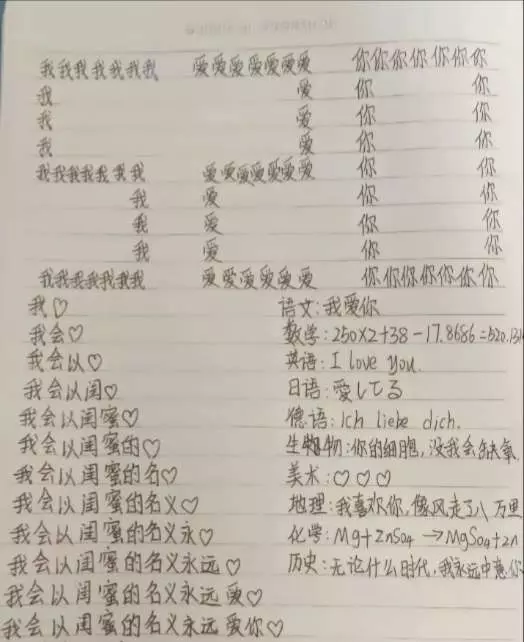 我我我我我我我 爱爱爱爱爱爱爱 你你你你你你你
我 爱 你 你
我 爱 你 你
我 爱 你 你
我我我我我我我 爱爱爱爱爱爱爱 你 你
我 爱 你 你
我 爱 你 你
我 爱 你 你
我我我我我我我 爱爱爱爱爱爱 你你你你你你你
我♡
我会♡
我会以♡
我会以闺♡
我会以闺蜜♡
我会以闺蜜的♡
我会以闺蜜的名♡
我会以闺蜜的名义♡
我会以闺蜜的名义永♡
我会以闺蜜的名义永远♡
我会以闺蜜的名义永远爱♡
我会以闺蜜的名义永远爱你♡
语文:我爱你
数学:250×2+38-17.8686=520.1314
英语:I love you.
日语:愛してる
德语:Ich liebe dich.
生物:你的细胞,没我会缺氧
美术:♡♡♡
地理:我喜欢你,像风走了八万里
化学:Mg+ZnSO4→MgSO4+Zn
历史:无论什么时代,我永远中意你